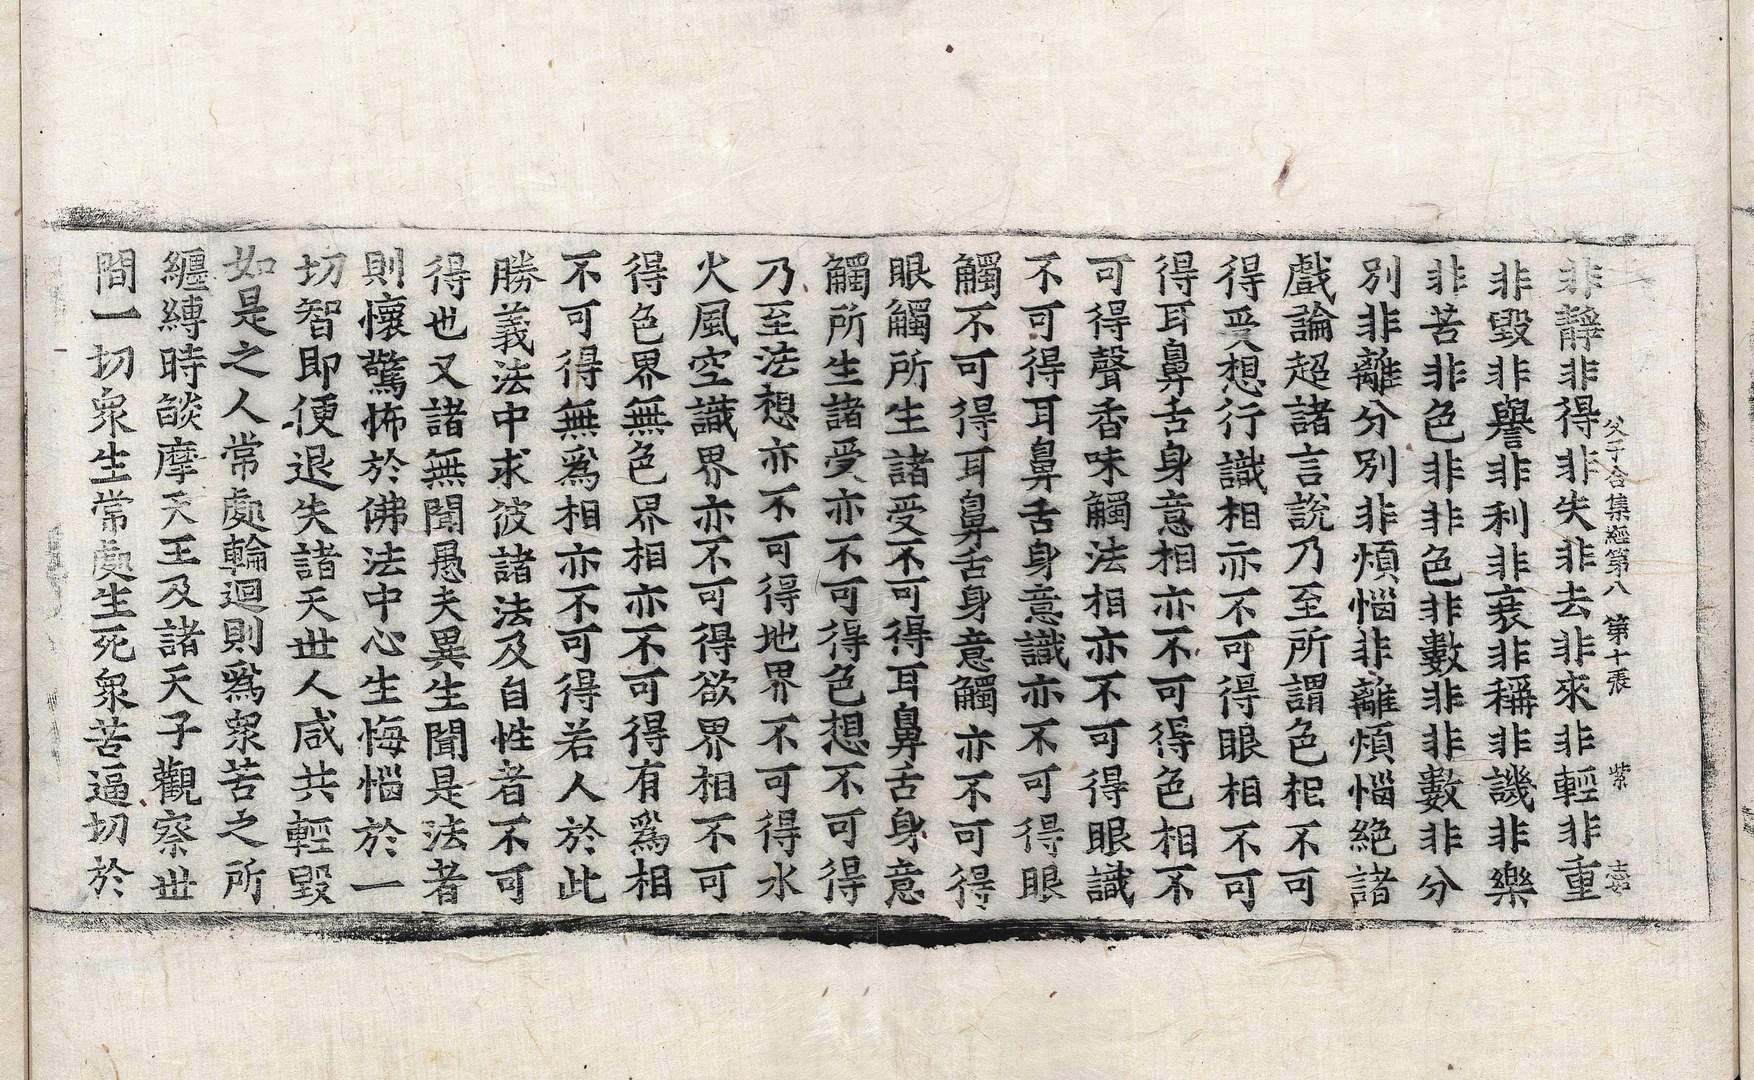 父子合集經第八 第十張 紫
非靜非得非失非去非來非輕非重
非毀非譽非利非衰非稱非譏非樂
非苦非色非非色非數非非數非分
別非離分別非煩惱非離煩惱絕諸
戲論超諸言說乃至所謂色相不可
得受想行識相亦不可得眼相不可
得耳鼻舌身意相亦不可得色相不
可得聲香味觸法相亦不可得眼識
不可得耳鼻舌身意識亦不可得眼
觸不可得耳鼻舌身意觸亦不可得
眼觸所生諸受不可得耳鼻舌身意
觸所生諸受亦不可得色想不可得
乃至法想亦不可得地界不可得水
火風空識界亦不可得欲界相不可
得色界無色界相亦不可得有爲相
不可得無爲相亦不可得若人於此
勝義法中求彼諸法及自性者不可
得也又諸無聞愚夫異生聞是法者
則懷驚怖於佛法中心生悔惱於一
切智即便退失諸天世人咸共輕毀
如是之人常處輪迴則爲衆苦之所
纏縛時焰摩天王及諸天子觀察世
間一切衆生常處生死衆苦逼切於